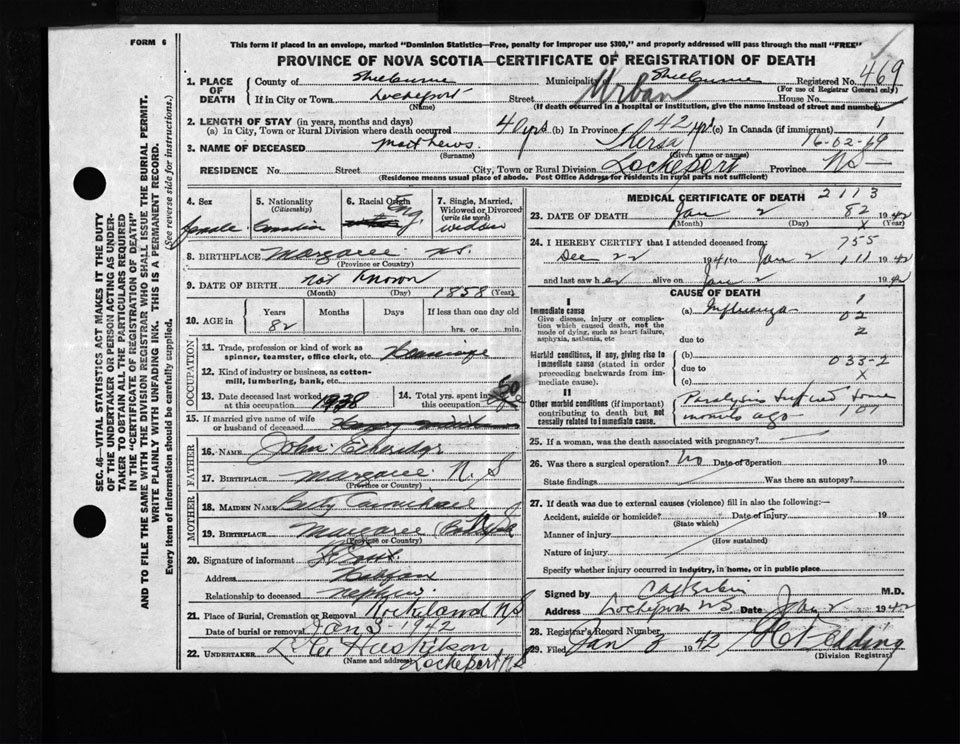 FORM 6
This form if placed in an envelope, marked "Dominion Statistics—Free, penalty for improper use $300," and properly addressed will pass through the mail "FREE"
PROVINCE OF NOVA SCOTIA—CERTIFICATE OF REGISTRATION OF DEATH
SEC. 46—VITAL STATISTICS ACT MAKES IT THE DUTY
OF THE UNDERTAKER OR PERSON ACTING AS UNDER-
TAKER TO OBTAIN ALL THE PARTICULARS REQUIRED
IN THE "CERTIFICATE OF REGISTRATION OF DEATH"
AND TO FILE THE SAME WITH THE DIVISION REGISTRAR WHO SHALL ISSUE THE BURIAL PERMIT.
WRITE PLAINLY WITH UNFADING INK. THIS IS A PERMANENT RECORD.
Every item of information should be carefully supplied. (See reverse side for instructions.)
1. PLACE OF DEATH County of Shelburne Municipality Shelburne Registered No. 469
(For use of Registrar General only)
If in City or Town Lockeport Street Urban House No.
(Name) (If death occurred in a hospital or institution, give the name instead of street and number)
2. LENGTH OF STAY (in years, months and days)
(a) In City, Town or Rural Division where death occurred 40 yrs (b) In Province 42 yrs (c) In Canada (if immigrant) 1
3. NAME OF DECEASED Matthews 16-02-69
(Surname) (Given name or names)
RESIDENCE No. Street City, Town or Rural Division Lockeport Province NS
(Residence means usual place of abode. Post Office Address for residents in rural parts not sufficient)
4. Sex
female
5. Nationality
(Citizenship)
Canadian
6. Racial Origin
Eng.
7. Single, Married,
Widowed or Divorced
(write the word)
widow
8. BIRTHPLACE Margaree NS.
(Province or Country)
9. DATE OF BIRTH Not Known 1858
(Month) (Day) (Year)
10. AGE in Years Months Days If less than one day old
82 hrs. or min.
OCCUPATION
11. Trade, profession or kind of work as
spinner, teamster, office clerk, etc.
12. Kind of industry or business, as cotton-
mill, lumbering, bank, etc.
13. Date deceased last worked
at this occupation 1938
14. Total yrs. spent in
this occupation 50
15. If married give name of wife
or husband of deceased
FATHER
16. NAME John
17. BIRTHPLACE Margaree N S
MOTHER
18. MAIDEN NAME Betsy
19. BIRTHPLACE Margaree
(Province or Country)
20. Signature of informant
Address
Relationship to deceased nephew
21. Place of Burial, Cremation or Removal NS
Date of burial or removal Jan 3 1942
22. UNDERTAKER
(Name and address) Lockeport NS
MEDICAL CERTIFICATE OF DEATH 2113
23. DATE OF DEATH Jan 2 82 1942
(Month) (Day) X (Year)
24. I HEREBY CERTIFY that I attended deceased from: 755
Dec 22 1941 to Jan 2 111 1942
and last saw her alive on Jan 2 1942
CAUSE OF DEATH
I
Immediate cause
Give disease, injury or complica-
tion which caused death, not the
mode of dying, such as heart failure,
asphyxia, asthenia, etc
(a) Influenza 1
02
2
due to
Morbid conditions, if any, giving rise to
immediate cause (stated in order
proceeding backwards from im-
mediate cause).
(b) 033-2
due to X
(c)
II
Other morbid conditions (if important)
contributing to death but not
causally related to immediate cause.
Paralysis some
months ago
25. If a woman, was the death associated with pregnancy?
26. Was there a surgical operation? No Date of operation 19
State findings Was there an autopsy?
27. If death was due to external causes (violence) fill in also the following:—
Accident, suicide or homicide? Date of injury 19
(State which)
Manner of injury
(How sustained)
Nature of injury
Specify whether injury occurred in industry, in home, or in public place
Signed by M.D.
Address Lockeport NS Date Jan 2 1942
28. Registrar's Record Number
29. Filed Jan 2 1942
(Division Registrar)